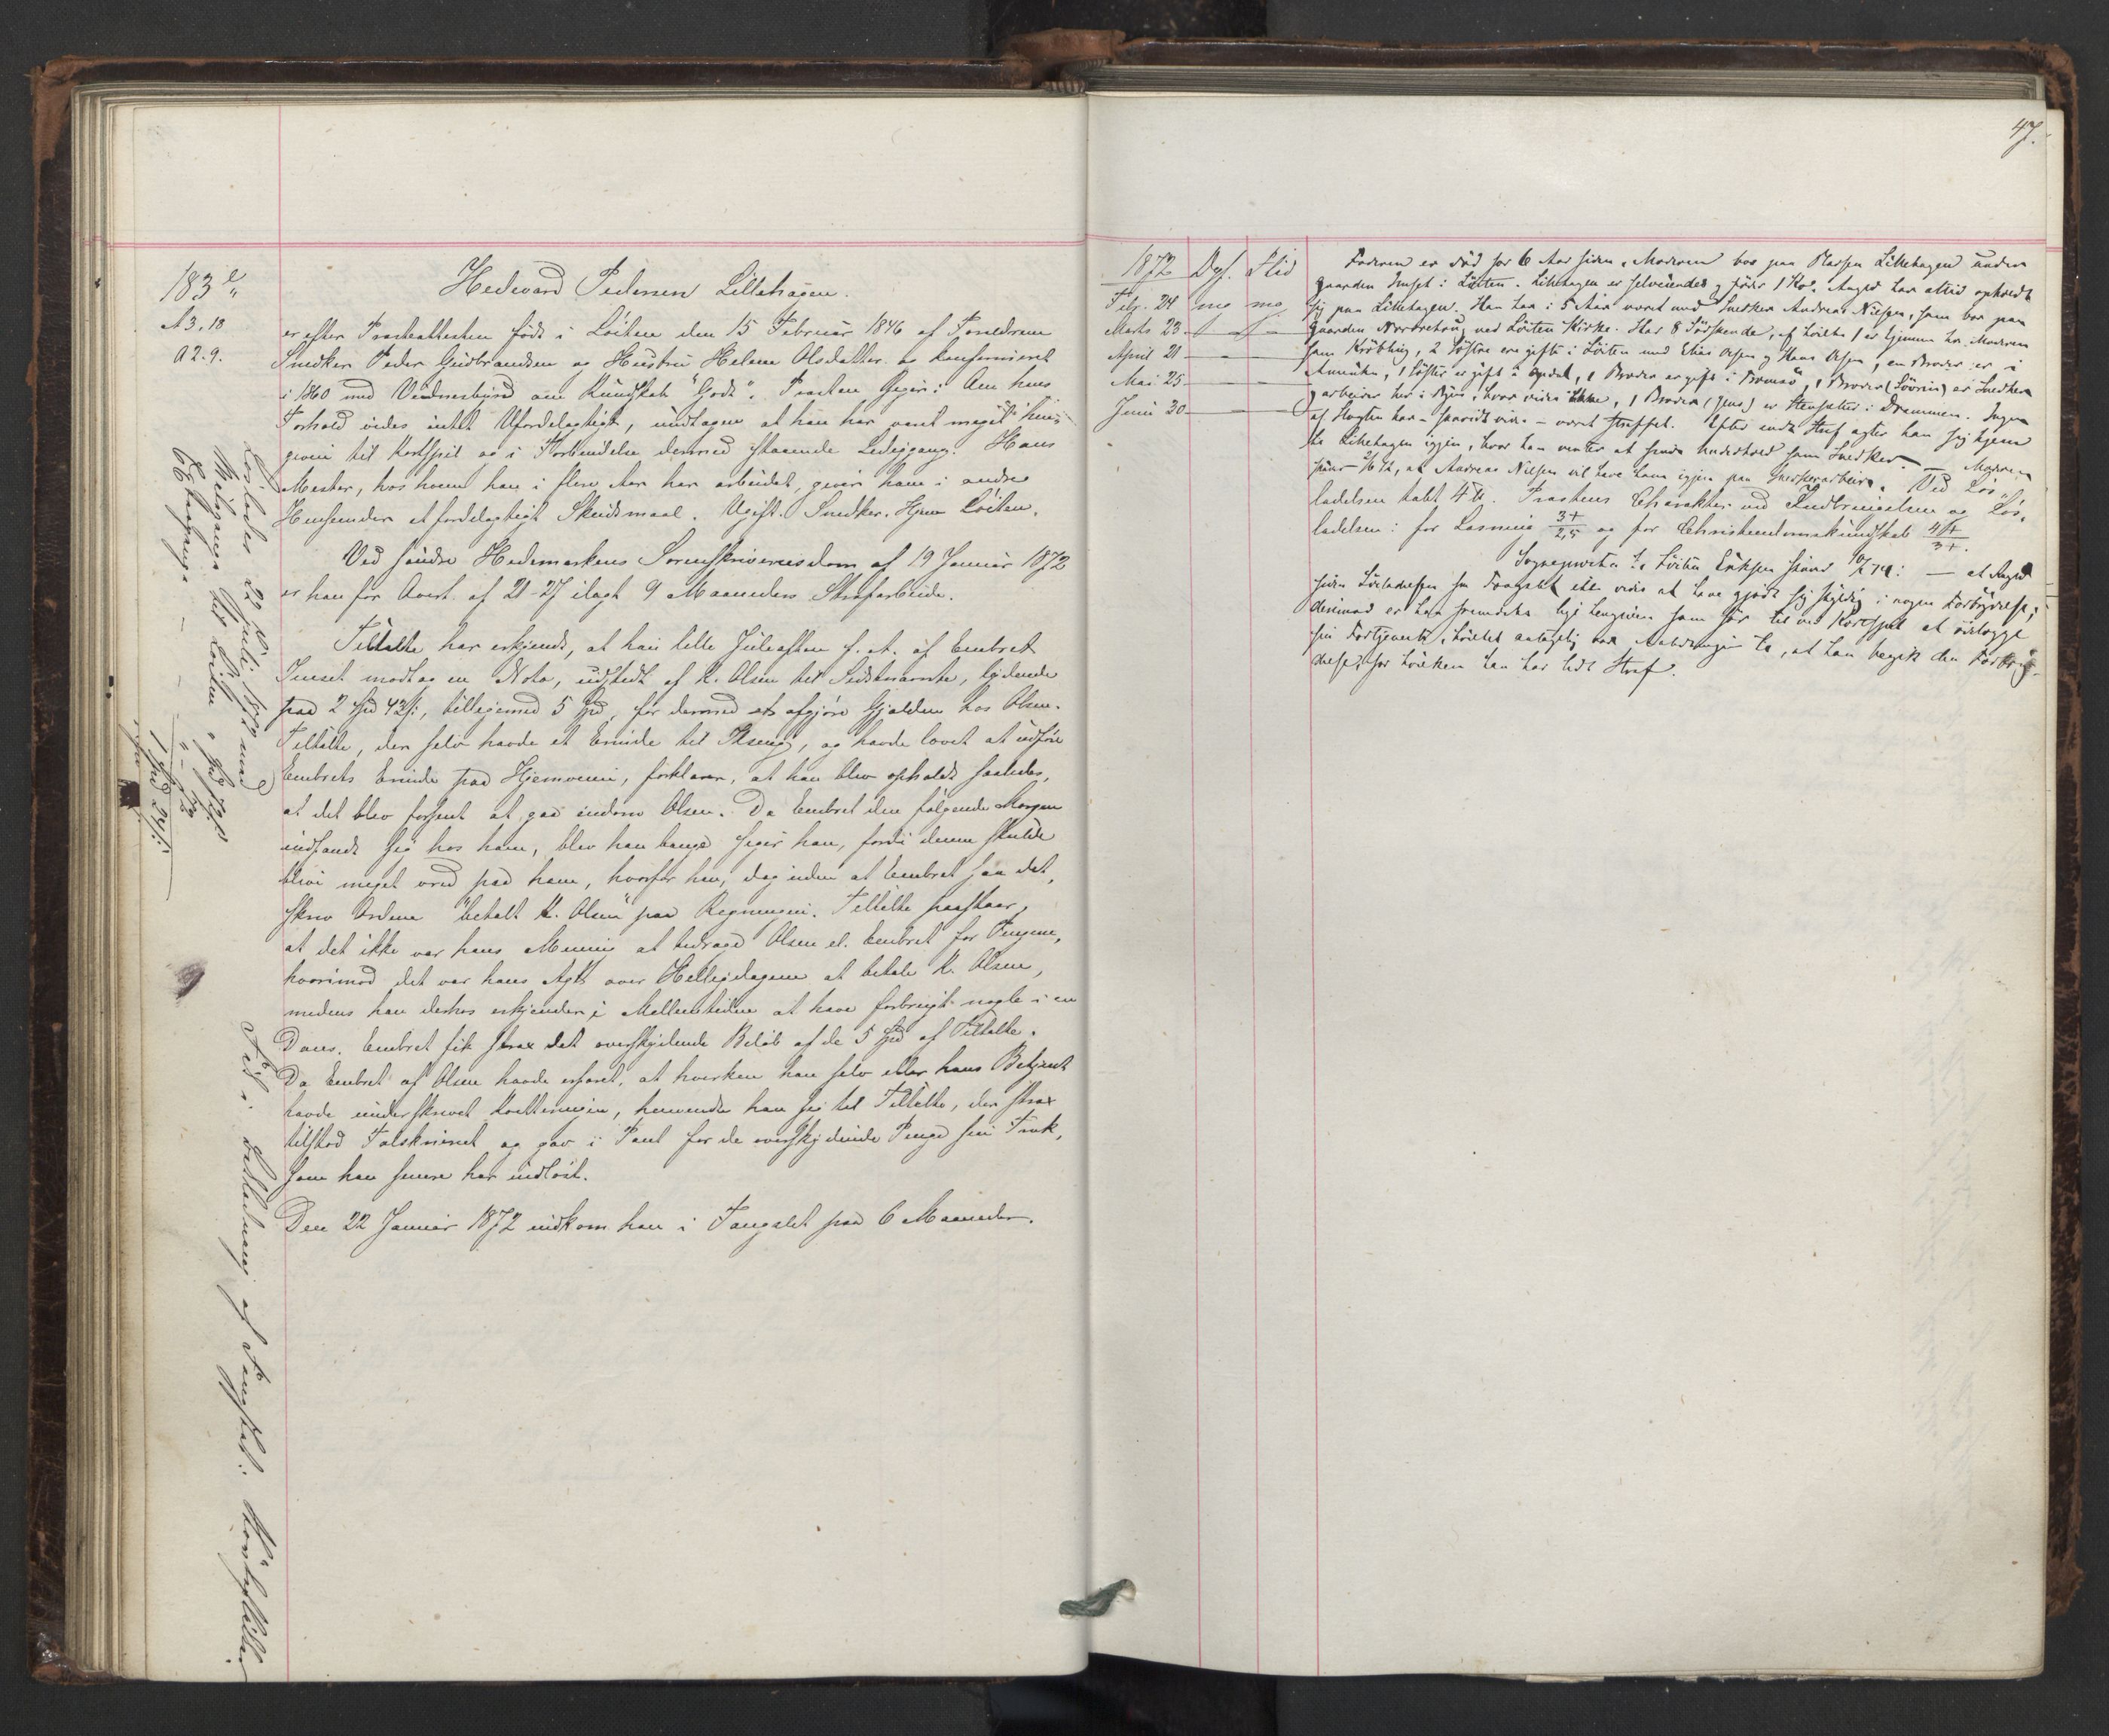 183
A 3, 18
A 2. 9.
Hedevard Pedersen Lillehagen.
er efter Præsteattesten født i Løiten den 15 Februar 1846 af Forældrene
Snedker Peder Gudbrandsen og Hustru Helene Olsdatter og konfirmeret
i 1860 med Vidnesbyrd om Kundskab "Godt". Præsten siger: Om hans
Forhold vides intet Ufordelagtigt, undtagen at han har været meget hen-
given til Kortspil og i Forbindelse dermed staaende Lediggang. Hans
Mester, hos hvem han i flere Aar har arbeidet, giver ham i andre
Henseender et fordelagtigt Skudsmaal. Ugift. Snedker. Hjem Løiten.
Ved søndre Hedemarkens Sorenskriveriesdom af 19 Januar 1872
er han for Overt. af 21-27 ilagt 9 Maaneders Strafarbeide.
Tiltalte har erkjendt, at han lille Juleaften f. A. af Embret
Imset modtog en Nota, udstedt af K. Olsen til Sidstnævnte, lydende
paa 2 Spd 42 s:, tilligemed 5 Spd, for dermed at afgjøre Gjælden hos Olsen.
Tiltalte, der selv havde et Erinde til Ilseng, og havde lovet at udføre
Embrets Erinde paa Hjemveien, forklarer, at han blev opholdt saaledes,
at det blev forsent at gaa indom Olsen. Da Embret den følgende Morgen
indfandt sig hos ham, blev han bange siger han, fordi denne skulde
blive meget vred paa ham, hvorfor han, dog uden at Embret saa det,
skrev Ordene "betalt K. Olsen" paa Regningen. Tiltalte paastaar,
at det ikke var hans Mening at bedrage Olsen el. Embret for Pengene,
hvorimod det var hans Agt over Helligdagene at betale K. Olsen,
medens han derhos erkjender i Mellemtiden at have forbrugt nogle i en
Dans. Embret fik strax det overskydende Beløb af de 5 Spd af Tiltalte.
Da Embret af Olsen havde erfaret, at hverken han selv eller hans Betjent
havde underskrevet Kvitteringen, henvendte han sig til Tiltalte, der strax
tilstod Falskneriet og gav i Pant for de overskydende Penge sin Frak,
som han senere har indløst.
Den 22 Januar 1872 indkom han i Fangslet paa 6 Maaneder.
Løsladt 22 Juli 1872 med
Reisepenge til Løiten
1 Spd 24 s:
Fik i Beholdning af Fængslet:
47.
1872 Dgf. Flid
Feb. 24 mg mg
Marts 23
April 21
Mai 25
Juni 30
Faderen er død for 6 Aar siden. Moderen bor paa Pladsen Lillehagen under
gaarden Imset i Løiten. Lillehagen er selveiendes og føder 1 Ko. Angjd har altid opholdt
sig paa Lillehagen. Han har i 5 Aar været med Snedker Andreas Nilsen, som bor paa
gaarden ved Løiten Kirke. Har 8 Søskende, af hvilke 1 er hjemme hos Moderen
som Krøbling, 2 Søstre ere gifte i Løiten med Elias Olsen og Hans Olsen, en Broder er i
Amerika, 1 Søster er gift i Opdal, 1 Broder er gift i Tromsø, 1 Broder (Søvrin) er Snedker
og arbeider her i Byen, hvor vides ikke, 1 Broder (Jens) er Stenhugger i Drammen. Ingen
af Slægten har - saavidt vides - været straffet. Efter endt Straf agter han sig hjem
til Lillehagen igjen, hvor han venter at finde Underhold som Snedker. — Moderen
siger 2/6 72, at Andreas Nilsen vil have ham igjen paa Snedkerarbeide. Ved Løs-
ladelsen talt 4 U. Præstens Charakter ved Indbringelsen og Løs-
ladelsen: for Læsning 3+/2,5 og for Christendomskundskab 4+/3+.
Sogneprest i Løiten Eriksen skrev /74: — at Angjd
siden Løsladelsen fra Fangslet ikke vides at have gjort sig skyldig i nogen Forbrydelse;
derimod er han fremdeles lige hengiven som før til ved Kortspil at ødelægge
sin Fortjeneste, hvilket antagelig var Anledningen til, at han begik den Forbry-
delse, for hvilken han har lidt Straf.